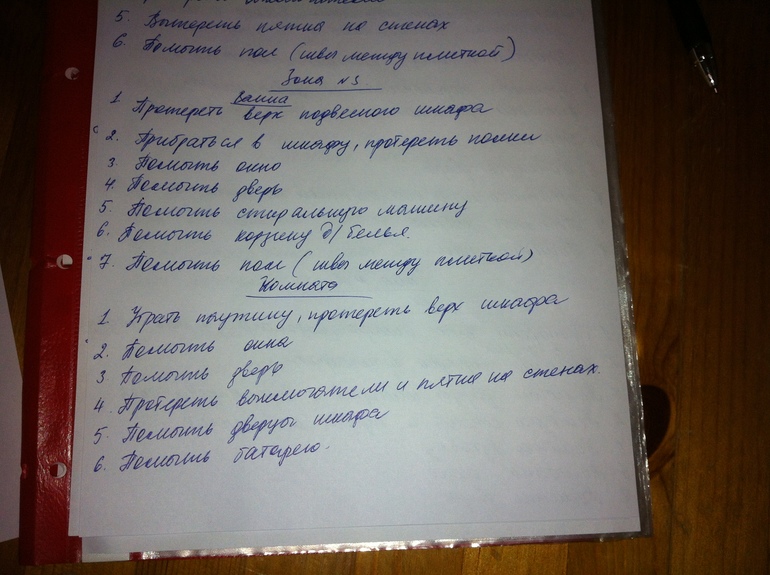 5. Вытереть пятна на стенах
6. Помыть пол (швы между плиткой)
Зона №3.
Ванна
1 Протереть верх подвесного шкафа
2. Прибраться в шкафу, протереть полки
3. Помыть окно
4. Помыть дверь
5. Помыть стиральную машину
6. Помыть корзину д/белья.
7. Помыть пол (швы между плиткой)
Комната
1. Убрать паутину, протереть верх шкафа
2. Помыть окна
3 Помыть дверь
4. Протереть выключатели и пятна на стенах.
5. Помыть дверцы шкафа
6. Помыть батарею.